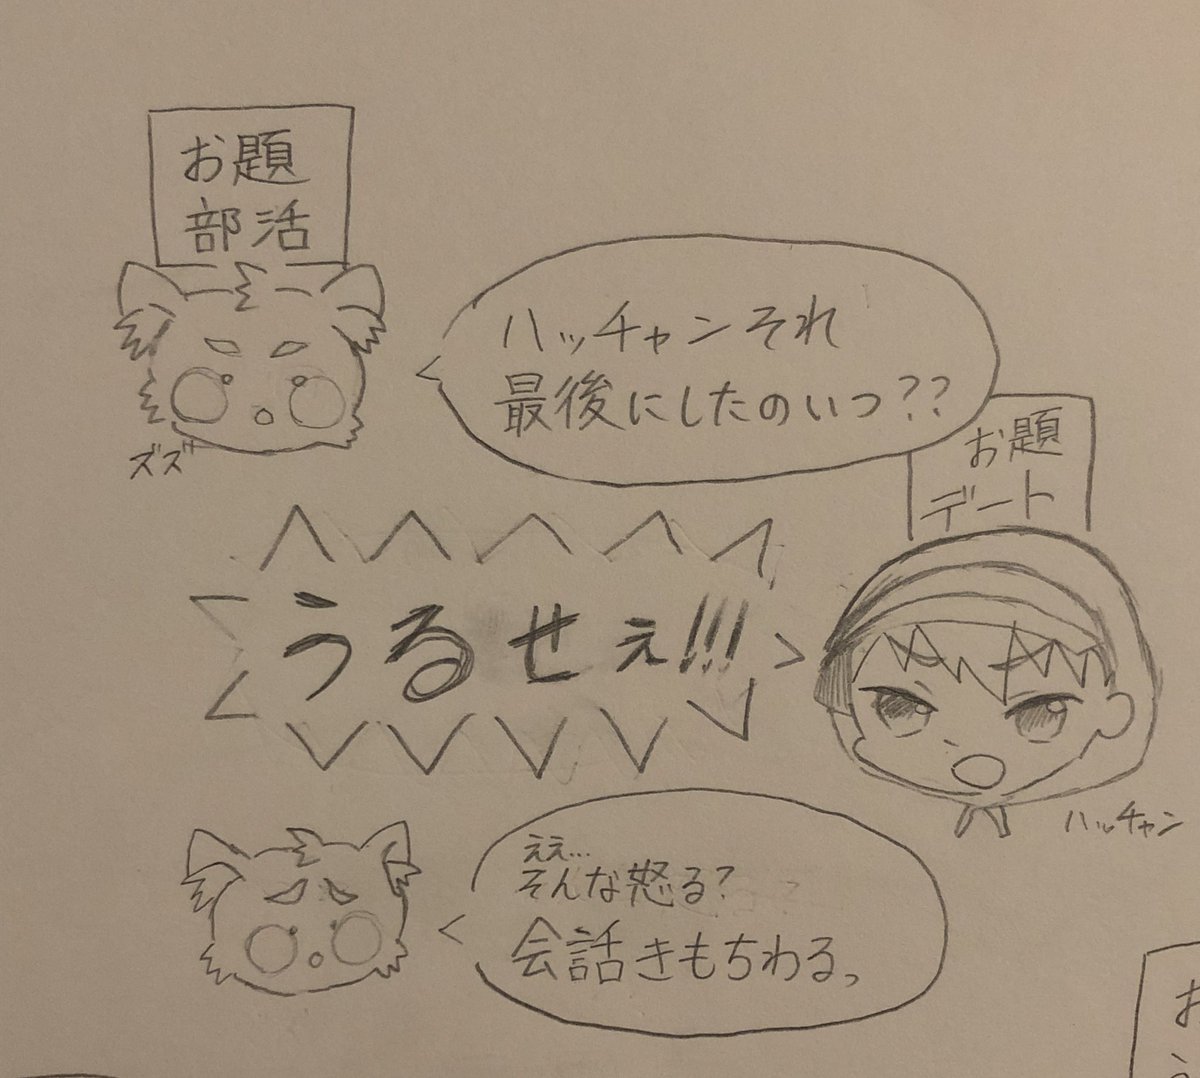 お題
部活
ハッチャンそれ
最後にしたのいつ??
ズズ
お題
デート
うるせぇ!!!
ハッチャン
ええ…
そんな怒る?
会話きもちわるっ
お